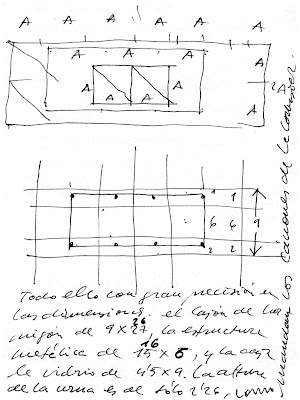 A A A A A A
A A A
A
A
A A A
2A
A
A
1 1
6 6 9
2 2
Todo ello con gran precisión en
las dimensiones: el cajón de hor
migón de 9 x 27, la estructura
36
metálica de 15 x 6, y la caja
16
de vidrio de 4'5 x 9. La altura
de la urna es de sólo 2'26, como
los cajones de Le Corbusier.